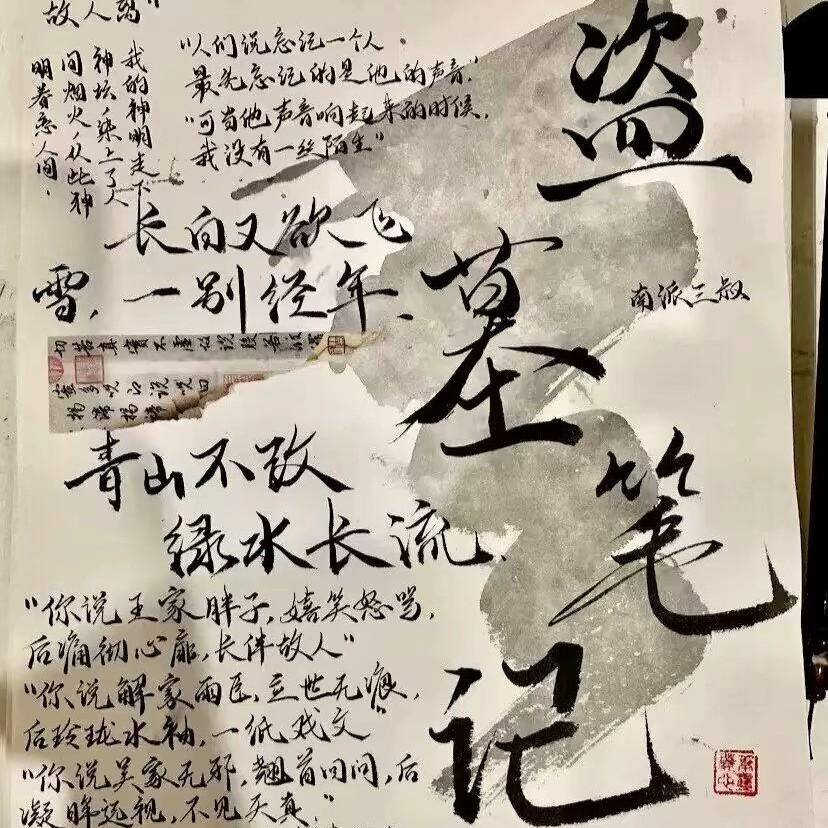 盗墓笔记
南派三叔
故人离"
"人们说忘记一个人
最先忘记的是他的声音"
"可当他声音响起来的时候,
我没有一丝陌生"
我的神明走下
神坛,染上了人
间烟火,从此神
明眷恋人间.
长白又欲飞
雪,一别经年.
切苦真实不虚故说般若波
蜜多咒即说咒曰
揭谛揭谛
青山不改
绿水长流.
"你说王家胖子,嬉笑怒骂,
后痛彻心扉,长伴故人"
"你说解家雨臣,立世无痕,
后玲珑水袖,一纸戏文"
"你说吴家无邪,翘首回问,后
凝眸远视,不见天真."